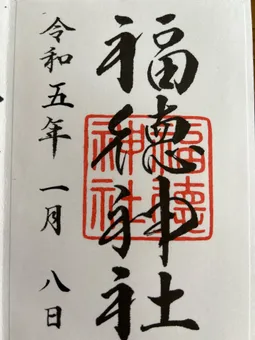 福德神社
福徳
神社
令和五年 一月 八日